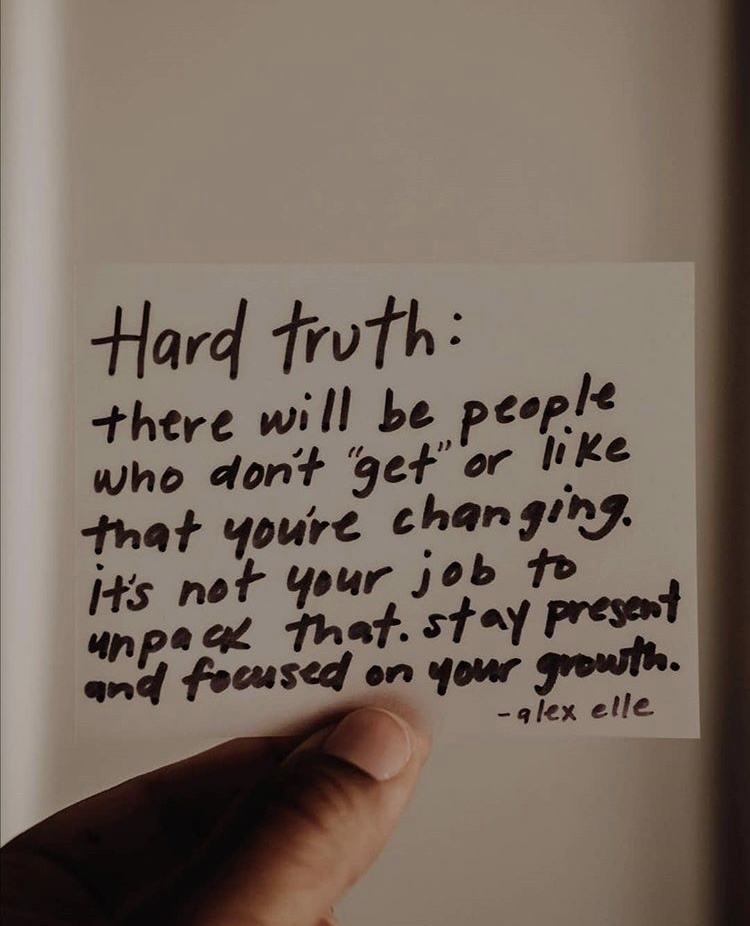 Hard truth:
there will be people
who don't "get" or like
that you're changing.
it's not your job to
unpack that. stay present
and focused on your growth.
-alex elle